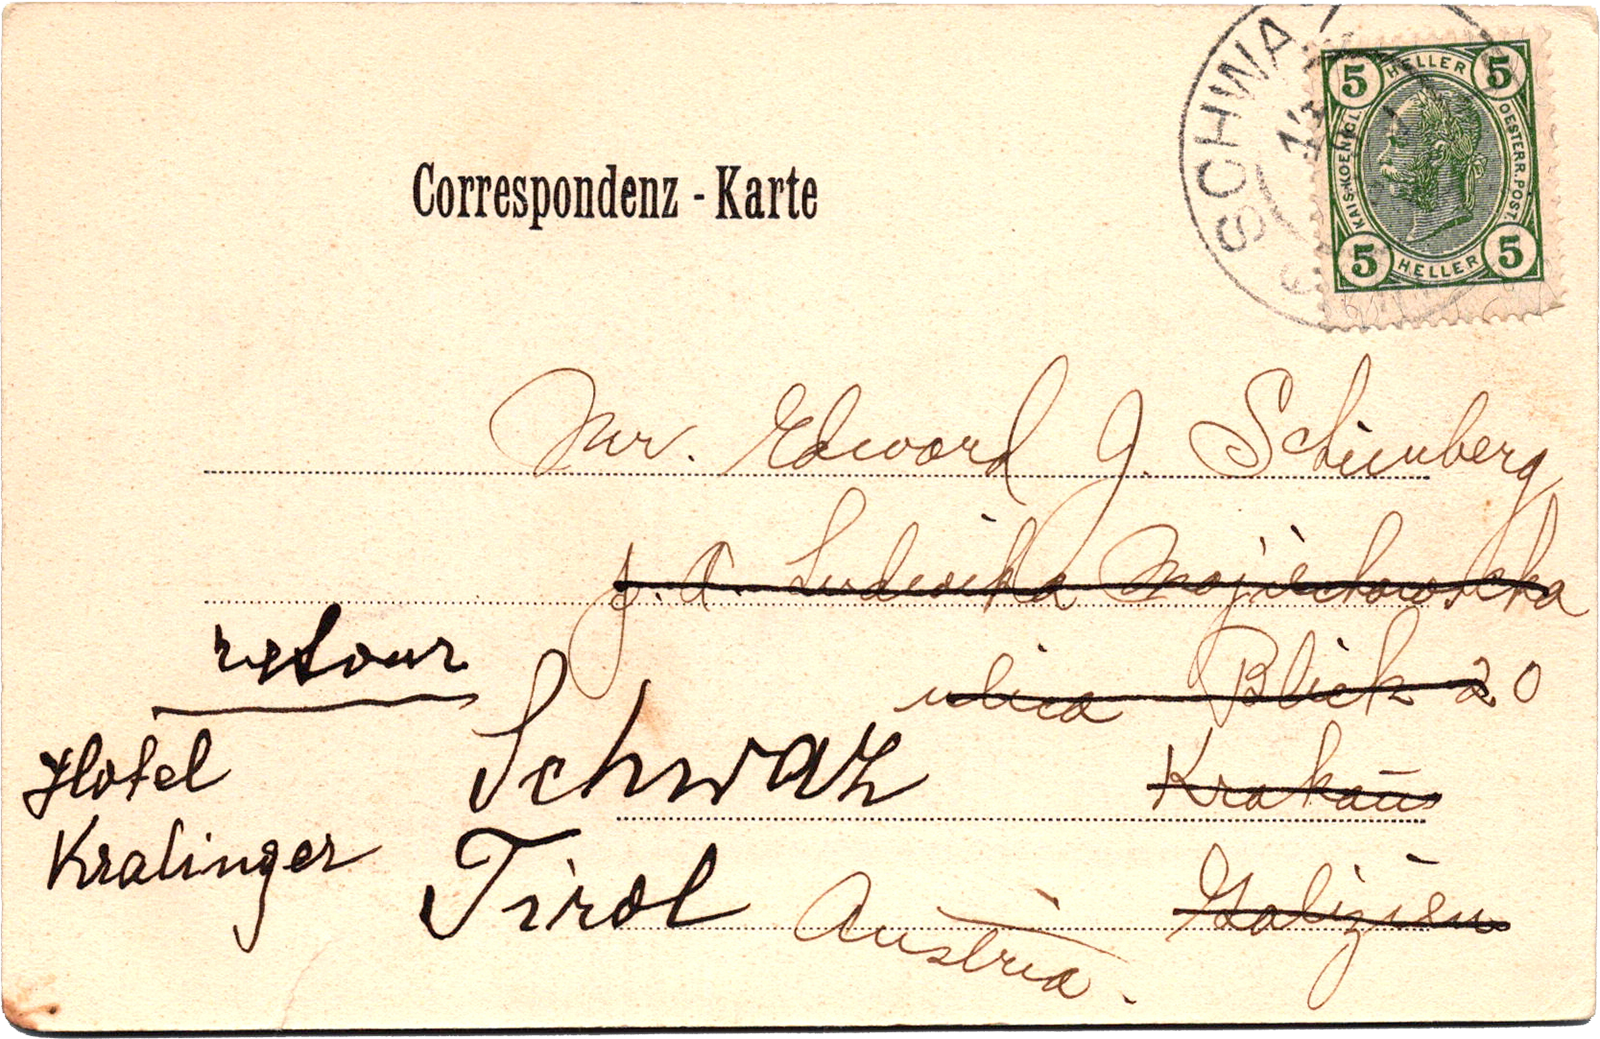 SCHWA
5 HELLER 5
KAIS. KOENIGL. OESTERR. POST.
5 HELLER 5
Correspondenz - Karte
Mr. Edward J. Schinberg
p. A. Ludwika Wojciechowska
ulica 20
retour
Hotel Schwaz Krakau
Kralinger Tirol Galizien
Austria.